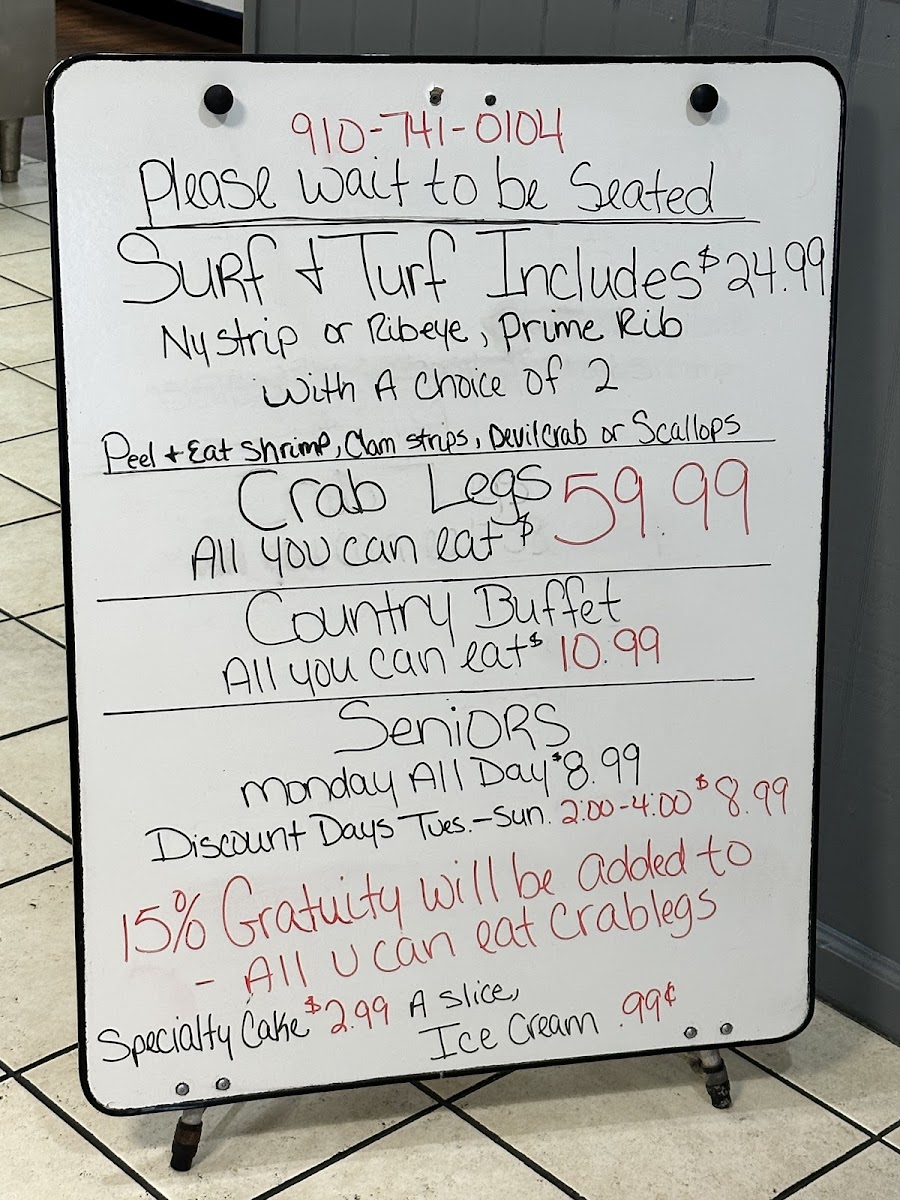 910-741-0104
Please wait to be Seated
Surf + Turf Includes $24.99
Ny strip or Ribeye, Prime Rib
with A Choice of 2
Peel + Eat Shrimp, Clam strips, Devilcrab or Scallops
Crab Legs
All you can eat $59.99
Country Buffet
All you can eat $10.99
Seniors
Monday All Day $8.99
Discount Days Tues.-Sun. 2:00-4:00 $8.99
15% Gratuity will be added to
- All U can eat Crablegs
Specialty Cake $2.99 A slice,
Ice Cream .99¢